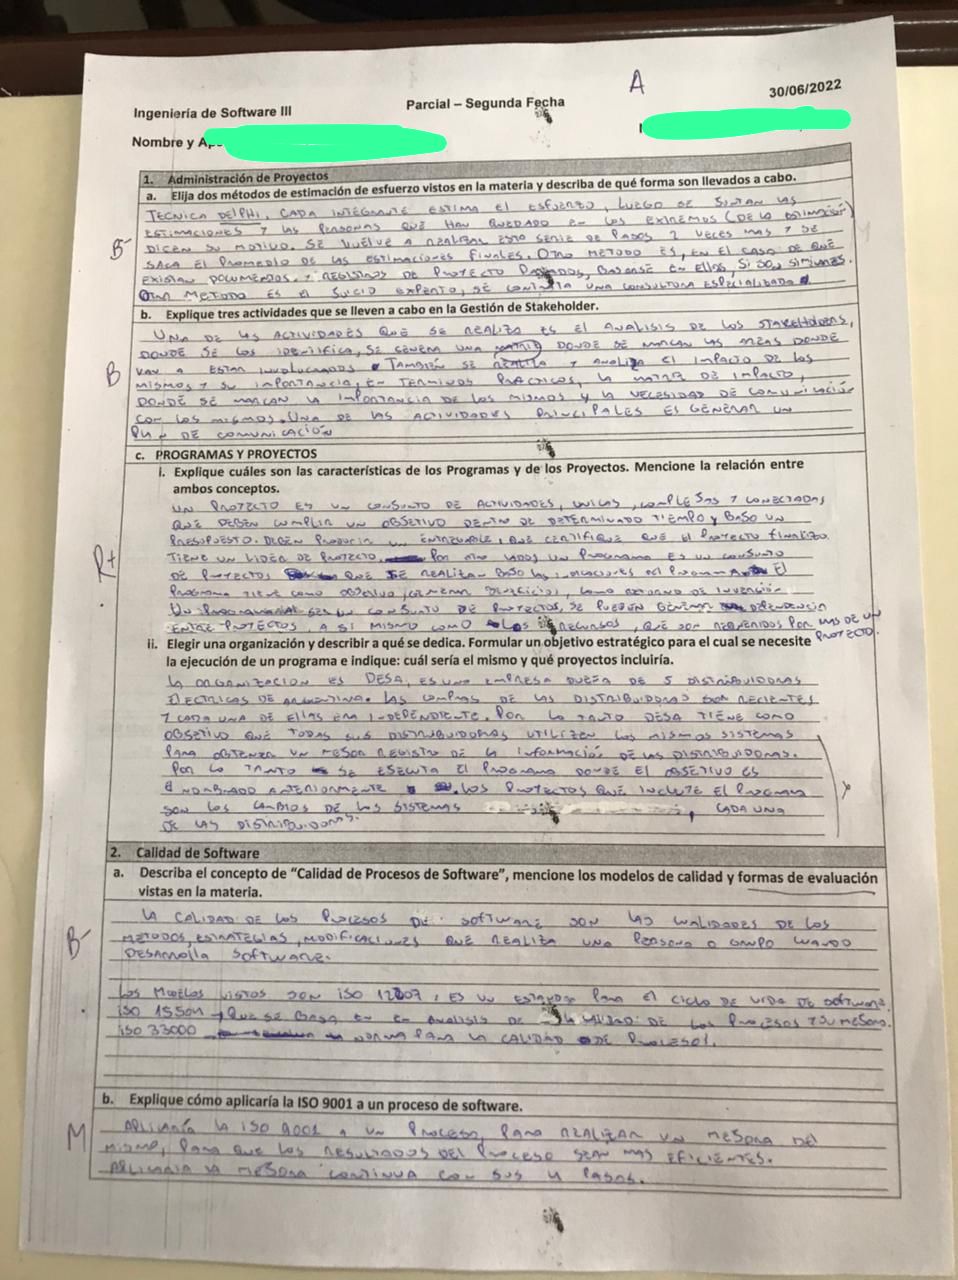 A
30/06/2022
Ingeniería de Software III
Parcial – Segunda Fecha
Nombre y Ap
1. Administración de Proyectos
a. Elija dos métodos de estimación de esfuerzo vistos en la materia y describa de qué forma son llevados a cabo.
TECNICA DELPHI, CADA INTEGRANTE ESTIMA EL ESFUERZO, LUEGO SE JUNTAN LAS
ESTIMACIONES Y LAS PERSONAS QUE HAN QUEDADO EN LOS EXTREMOS (DE LA ESTIMACIÓN)
B-
DICEN SU MOTIVO. SE VUELVE A REALIZAR ESTO SERIE DE PASOS 2 VECES MAS Y SE
SACA EL PROMEDIO DE LAS ESTIMACIONES FINALES. OTRO METODO ES, EN EL CASO DE QUE
EXISTAN DOCUMENTOS Y REGISTROS DE PROYECTO PASADOS, BASARSE EN ELLOS, SI SON SIMILARES.
OTRO METODO ES EL JUICIO EXPERTO, SE CONTRATA UNA CONSULTORA ESPECIALIZADA
b. Explique tres actividades que se lleven a cabo en la Gestión de Stakeholder.
UNA DE LAS ACTIVIDADES QUE SE REALIZA ES EL ANALISIS DE LOS STAKEHOLDERS,
DONDE SE LOS IDENTIFICA, SE GENERA UNA MATRIZ DONDE SE MARCAN LAS AREAS DONDE
B
VAN A ESTAR INVOLUCRADOS. TAMBIÉN SE REALIZA Y ANALIZA EL IMPACTO DE LOS
MISMOS Y SU IMPORTANCIA, EN TERMINOS PRACTICOS, LA MATRIZ DE IMPACTO,
DONDE SE MARCAN LA IMPORTANCIA DE LOS MISMOS Y LA NECESIDAD DE COMUNICACIÓN
CON LOS MISMOS. UNA DE LAS ACTIVIDADES PRINCIPALES ES GENERAR UN
PLAN DE COMUNICACIÓN
c. PROGRAMAS Y PROYECTOS
i. Explique cuáles son las características de los Programas y de los Proyectos. Mencione la relación entre
ambos conceptos.
UN PROYECTO ES UN CONJUNTO DE ACTIVIDADES, UNICAS, COMPLEJAS Y CONECTADAS
QUE DEBEN CUMPLIR UN OBJETIVO DENTRO DE DETERMINADO TIEMPO y BAJO UN
PRESUPUESTO. DEBEN PRODUCIR UN ENTREGABLE, QUE CERTIFIQUE QUE EL PROYECTO FINALIZO.
R+
TIENE UN LIDER DE PROYECTO. POR OTRO LADO, UN PROGRAMA ES UN CONJUNTO
DE PROYECTOS QUE SE REALIZAN BAJO LAS DEL PROGRAMA EL
PROGRAMA TIENE COMO OBJETIVO, GENERAR BENEFICIOS, COMO RETORNO DE INVERSIÓN
UN PROGRAMA AL SER UN CONJUNTO DE PROYECTOS, SE PUEDEN GENERAR DEPENDENCIA
ENTRE PROYECTOS, A SI MISMO COMO LOS RECURSOS, QUE SON REQUERIDOS POR MAS DE UN
PROYECTO.
ii. Elegir una organización y describir a qué se dedica. Formular un objetivo estratégico para el cual se necesite
la ejecución de un programa e indique: cuál sería el mismo y qué proyectos incluiría.
LA ORGANIZACION ES DESA, ES UNA EMPRESA DUEÑA DE 5 DISTRIBUIDORAS
ELECTRICAS DE ARGENTINA. LAS COMPRAS DE LAS DISTRIBUIDORAS SON RECIENTES
Y CADA UNA DE ELLAS ERA INDEPENDIENTE. POR LO TANTO DESA TIENE COMO
OBJETIVO QUE TODAS SUS DISTRIBUIDORAS UTILIZEN LOS MISMOS SISTEMAS
PARA OBTENER UN MEJOR REGISTRO DE LA INFORMACIÓN DE LAS DISTRIBUIDORAS.
POR LO TANTO SE EJECUTA EL PROGRAMA DONDE EL OBJETIVO ES
EL NOMBRADO ANTERIORMENTE. LOS PROYECTOS QUE INCLUYE EL PROGRAMA
SON LOS CAMBIOS DE LOS SISTEMAS , CADA UNA
DE LAS DISTRIBUIDORAS.
2. Calidad de Software
a. Describa el concepto de “Calidad de Procesos de Software”, mencione los modelos de calidad y formas de evaluación
vistas en la materia.
LA CALIDAD DE LOS PROCESOS DE SOFTWARE SON LAS CUALIDADES DE LOS
B-
METODOS, ESTRATEGIAS, MODIFICACIONES QUE REALIZA UNA PERSONA O GRUPO CUANDO
DESARROLLA SOFTWARE.
LOS MODELOS VISTOS SON ISO 12207, ES UN ESTANDAR PARA EL CICLO DE VIDA DE SOFTWARE
ISO 15504, QUE SE BASA EN EN ANALISIS DE LA CALIDAD DE LOS PROCESOS Y SU MEJORA.
ISO 33000 NORMA PARA LA CALIDAD DE PROCESOS.
b. Explique cómo aplicaría la ISO 9001 a un proceso de software.
M
APLICARÍA LA ISO 9001 A UN PROCESO, PARA REALIZAR UN MEJORA DEL
MISMO, PARA QUE LOS RESULTADOS DEL PROCESO SEAN MAS EFICIENTES.
APLICARIA LA MEJORA CONTINUA CON SUS 4 PASOS.